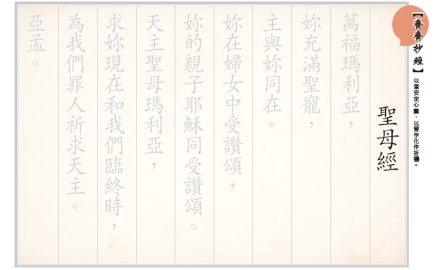 【齊齊抄經】
以筆安定心靈，以習字化作祈禱。
聖母經
萬福瑪利亞，
妳充滿聖寵，
主與妳同在。
妳在婦女中受讚頌，
妳的親子耶穌同受讚頌。
天主聖母瑪利亞，
求妳現在和我們臨終時，
為我們罪人祈求天主。
亞孟。